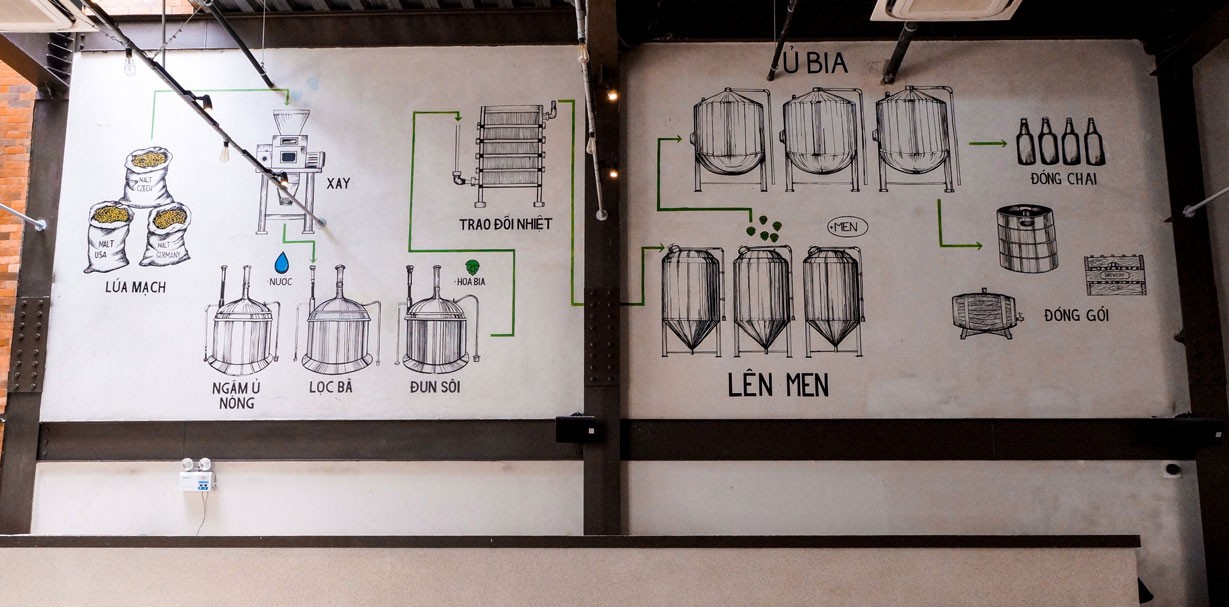 MALT
CZECH
MALT
USA
MALT
GERMANY
LÚA MẠCH
XAY
•NƯỚC
NGÂM Ủ
NÓNG
LỌC BÃ
•HOA BIA
ĐUN SÔI
TRAO ĐỔI NHIỆT
Ủ BIA
•MEN
LÊN MEN
ĐÓNG CHAI
BREWERY
ĐÓNG GÓI